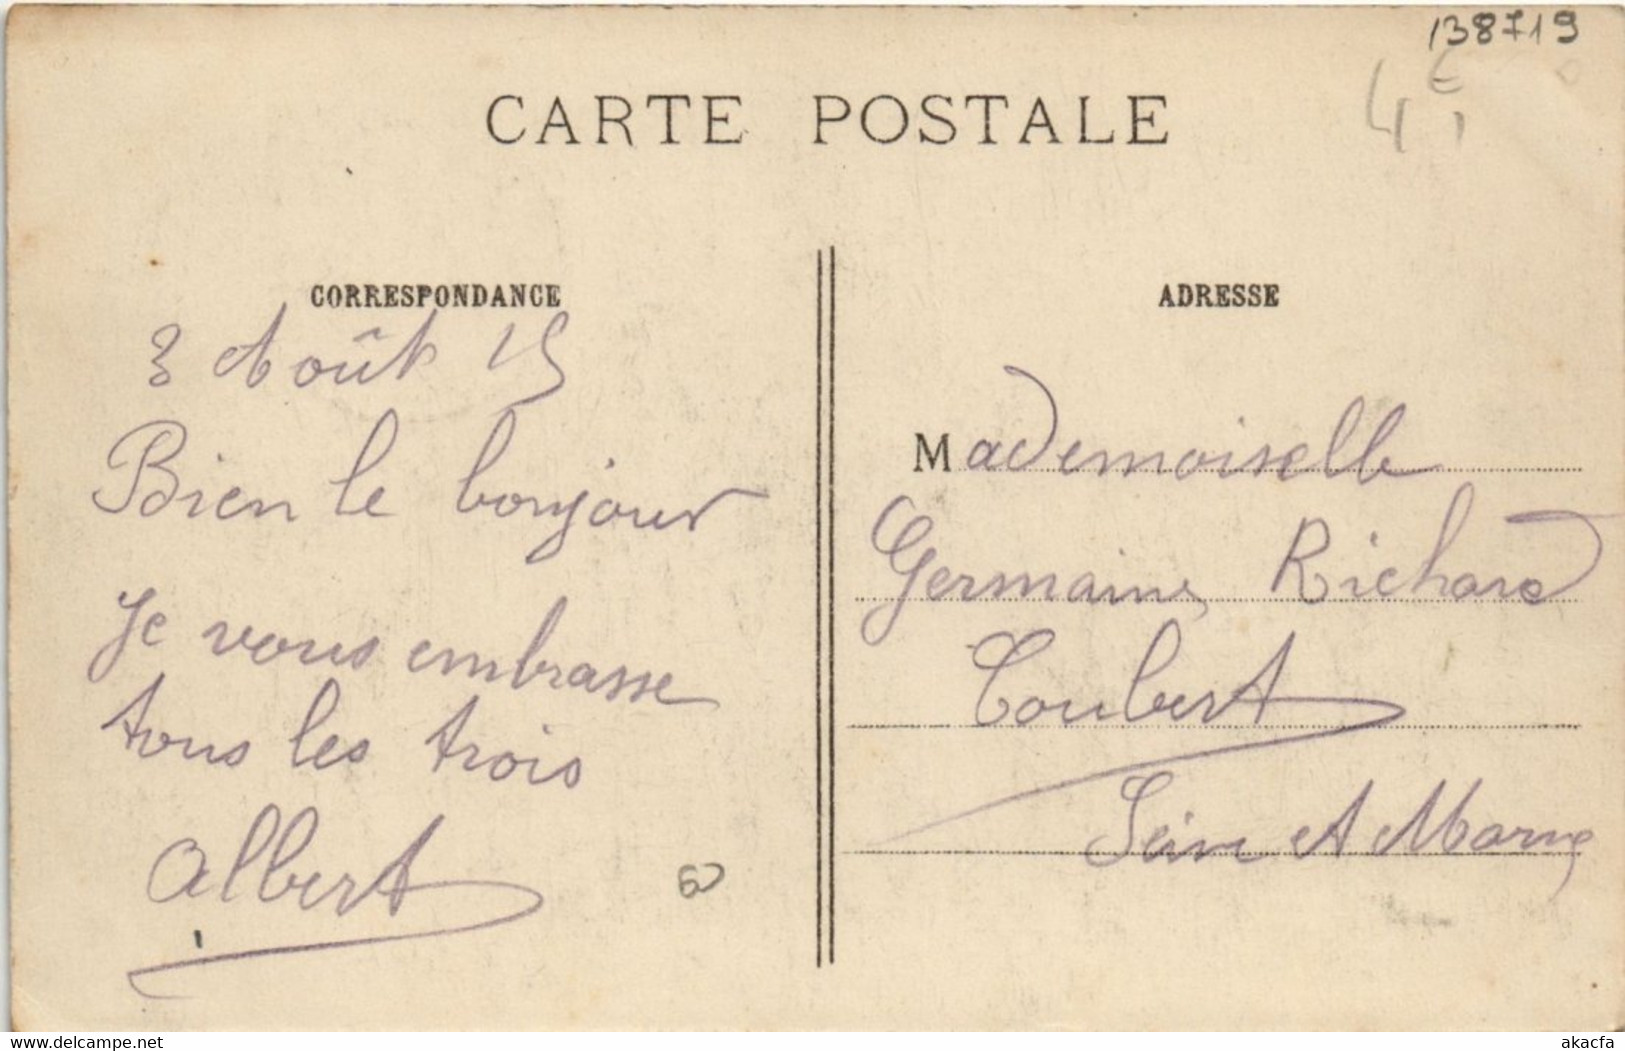 138719
4 €
CARTE POSTALE
CORRESPONDANCE
3 Août 15
Bien le bonjour
Je vous embrasse
tous les trois
Albert
60
ADRESSE
Mademoiselle
Germaine Richard
Coubert
Seine et Marne
www.delcampe.net
akacfa